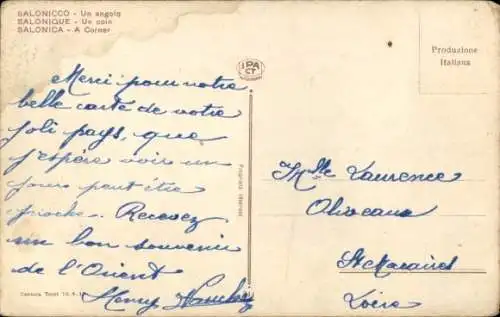 SALONICCO - Un angolo
SALONIQUE - Un coin
SALONICA - A Corner
IPA
CT
Produzione
Italiana
Merci pour votre
belle carte de votre
joli pays, que
j'espère voir un
jour peut être
proche. Recevez
un bon souvenir
de l'Orient
Henry
Proprietà riservata
Mlle Laurence
St
Loire